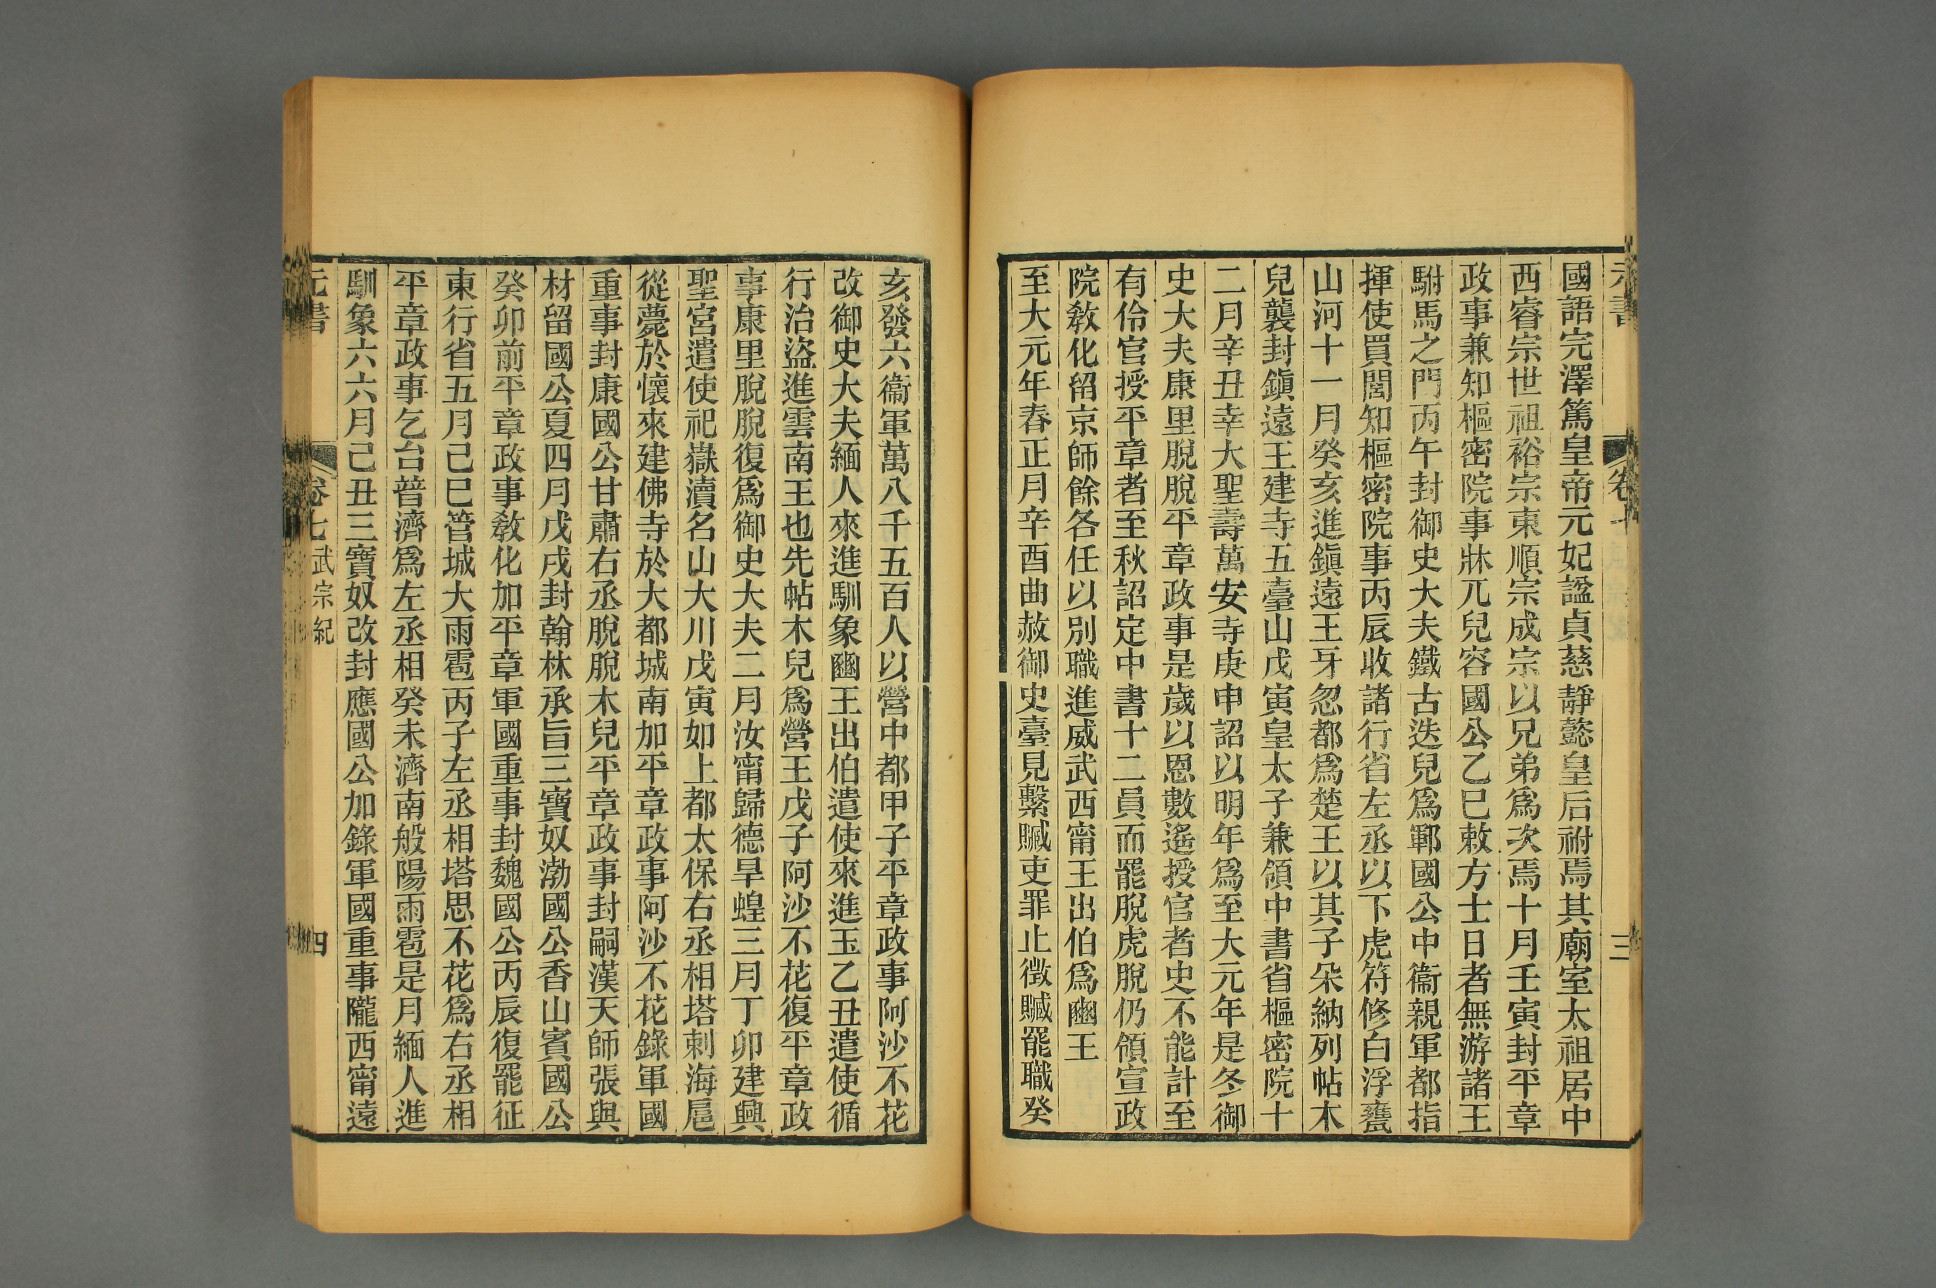 國語完澤篤皇帝元妃諡貞慈靜懿皇后祔焉其廟室太祖居中
西睿宗世祖裕宗東順宗成宗以兄弟為次焉十月壬寅封平章
政事兼知樞密院事牀兀兒容國公乙巳敕方士日者無游諸王
駙馬之門丙午封御史大夫鐵古迭兒為鄆國公中衞親軍都指
揮使買閭知樞密院事丙辰收諸行省左丞以下虎符修白浮甕
山河十一月癸亥進鎭遠王牙忽都為楚王以其子朵納列帖木
兒襲封鎭遠王建寺五臺山戊寅皇太子兼領中書省樞密院十
二月辛丑幸大聖壽萬安寺庚申詔以明年為至大元年是冬御
史大夫康里脫脫平章政事是歲以恩數遙授官者史不能計至
有伶官授平章者至秋詔定中書十二員而罷脫虎脫仍領宣政
院敎化留京師餘各任以別職進威武西甯王出伯為豳王
至大元年春正月辛酉曲赦御史臺見繫贓吏罪止徵贓罷職癸
亥發六衞軍萬八千五百人以營中都甲子平章政事阿沙不花
改御史大夫緬人來進馴象豳王出伯遣使來進玉乙丑遣使循
行治盜進雲南王也先帖木兒為營王戊子阿沙不花復平章政
事康里脫脫復為御史大夫二月汝甯歸德旱蝗三月丁卯建興
聖宮遣使祀嶽瀆名山大川戊寅如上都太保右丞相塔剌海扈
從薨於懷來建佛寺於大都城南加平章政事阿沙不花錄軍國
重事封康國公甘肅右丞脫脫木兒平章政事封嗣漢天師張與
材留國公夏四月戊戌封翰林承旨三寶奴渤國公香山賓國公
癸卯前平章政事敎化加平章軍國重事封魏國公丙辰復罷征
東行省五月己巳管城大雨雹丙子左丞相塔思不花為右丞相
平章政事乞台普濟為左丞相癸未濟南般陽雨雹是月緬人進
馴象六六月己丑三寶奴改封應國公加錄軍國重事隴西甯遠
元書
卷七武宗紀
四